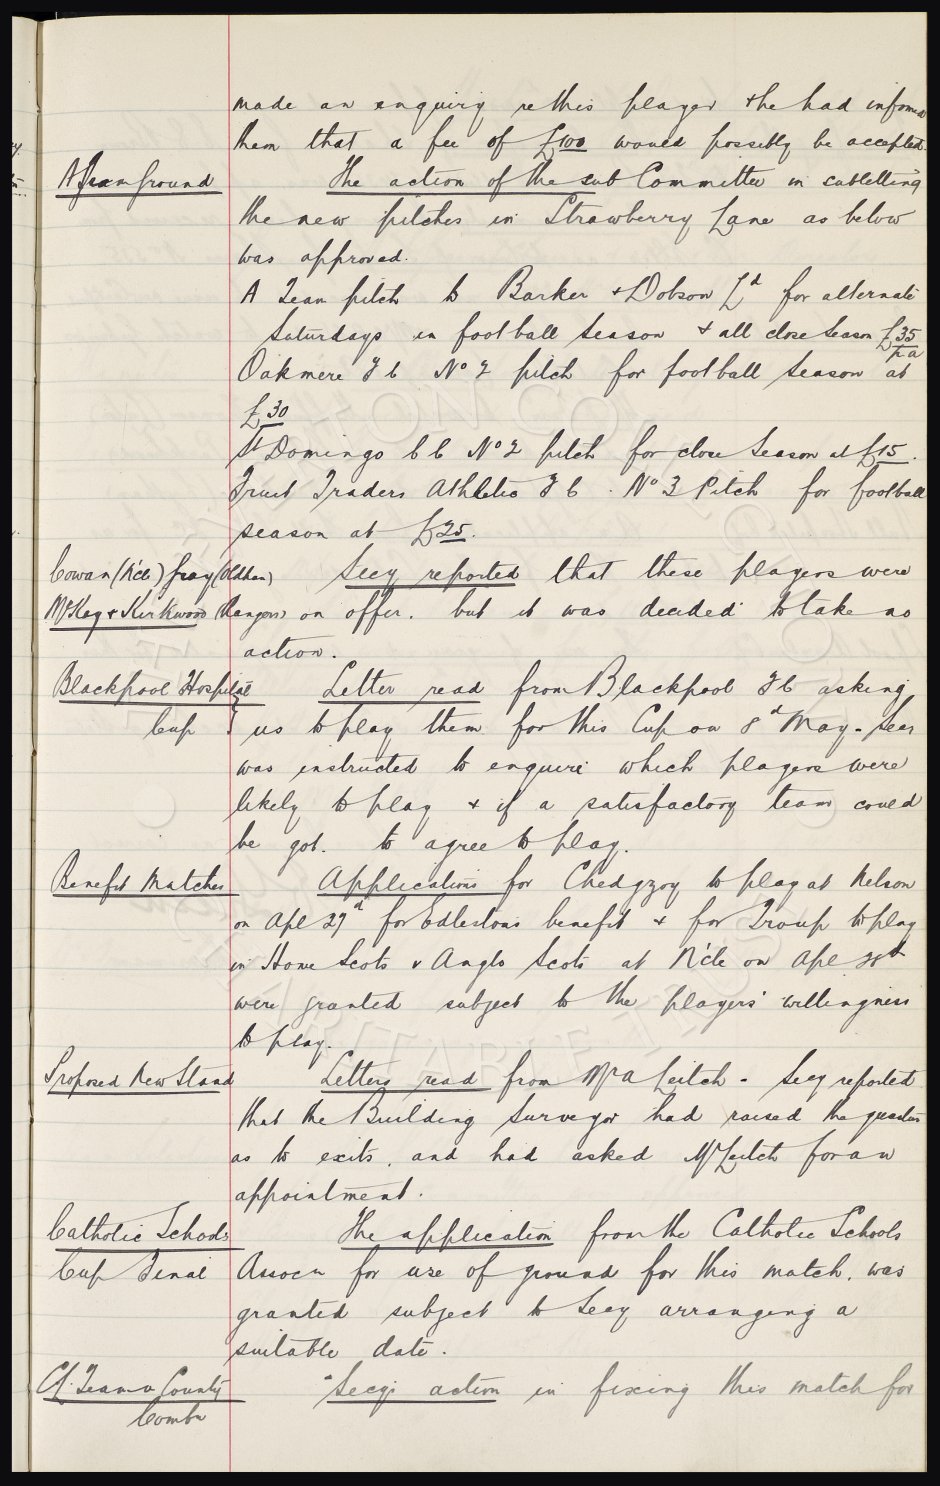 made an enquiry re this player & he had informed
them that a fee of £100 would possibly be accepted.
A Team Ground
The action of the sub Committee in subletting
the new pitches in Strawberry Lane as below
was approved.
A Team pitch to Barker & Dobson Ld for alternate
Saturdays in football season & all close season £35
p a
Oakmere F C No 2 pitch for football season at
£30
St Domingo C C No 2 pitch for close season at £15.
Fruit Traders Athletic F C. No 3 Pitch for football
season at £25.
Cowan (N'cle) Gray (Oldham)
Secy reported that these players were
McKay & Kirkwood (Rangers)
on offer. but it was decided to take no
action.
Blackpool Hospital
Letter read from Blackpool F C asking
Cup
us to play them for this Cup on 8d May. Secy
was instructed to enquire which players were
likely to play & if a satisfactory team could
be got. to agree to play.
Benefit Matches
Applications for Chedgzoy to play at Nelson
on Apl 27d for Edlestons benefit & for Troup to play
in Home Scots v Anglo Scots at N'cle on Apl 28th
were granted subject to the players' willingness
to play.
Proposed New Stand
Letters read from Mr A Leitch. Secy reported
that the Building Surveyor had raised the question
as to exits, and had asked Mr Leitch for an
appointment.
Catholic Schools
The application from the Catholic Schools
Cup Final
Assocn for use of ground for this match, was
granted subject to Secy arranging a
suitable date.
A. Team v County
Secys action in fixing this match for
Combn